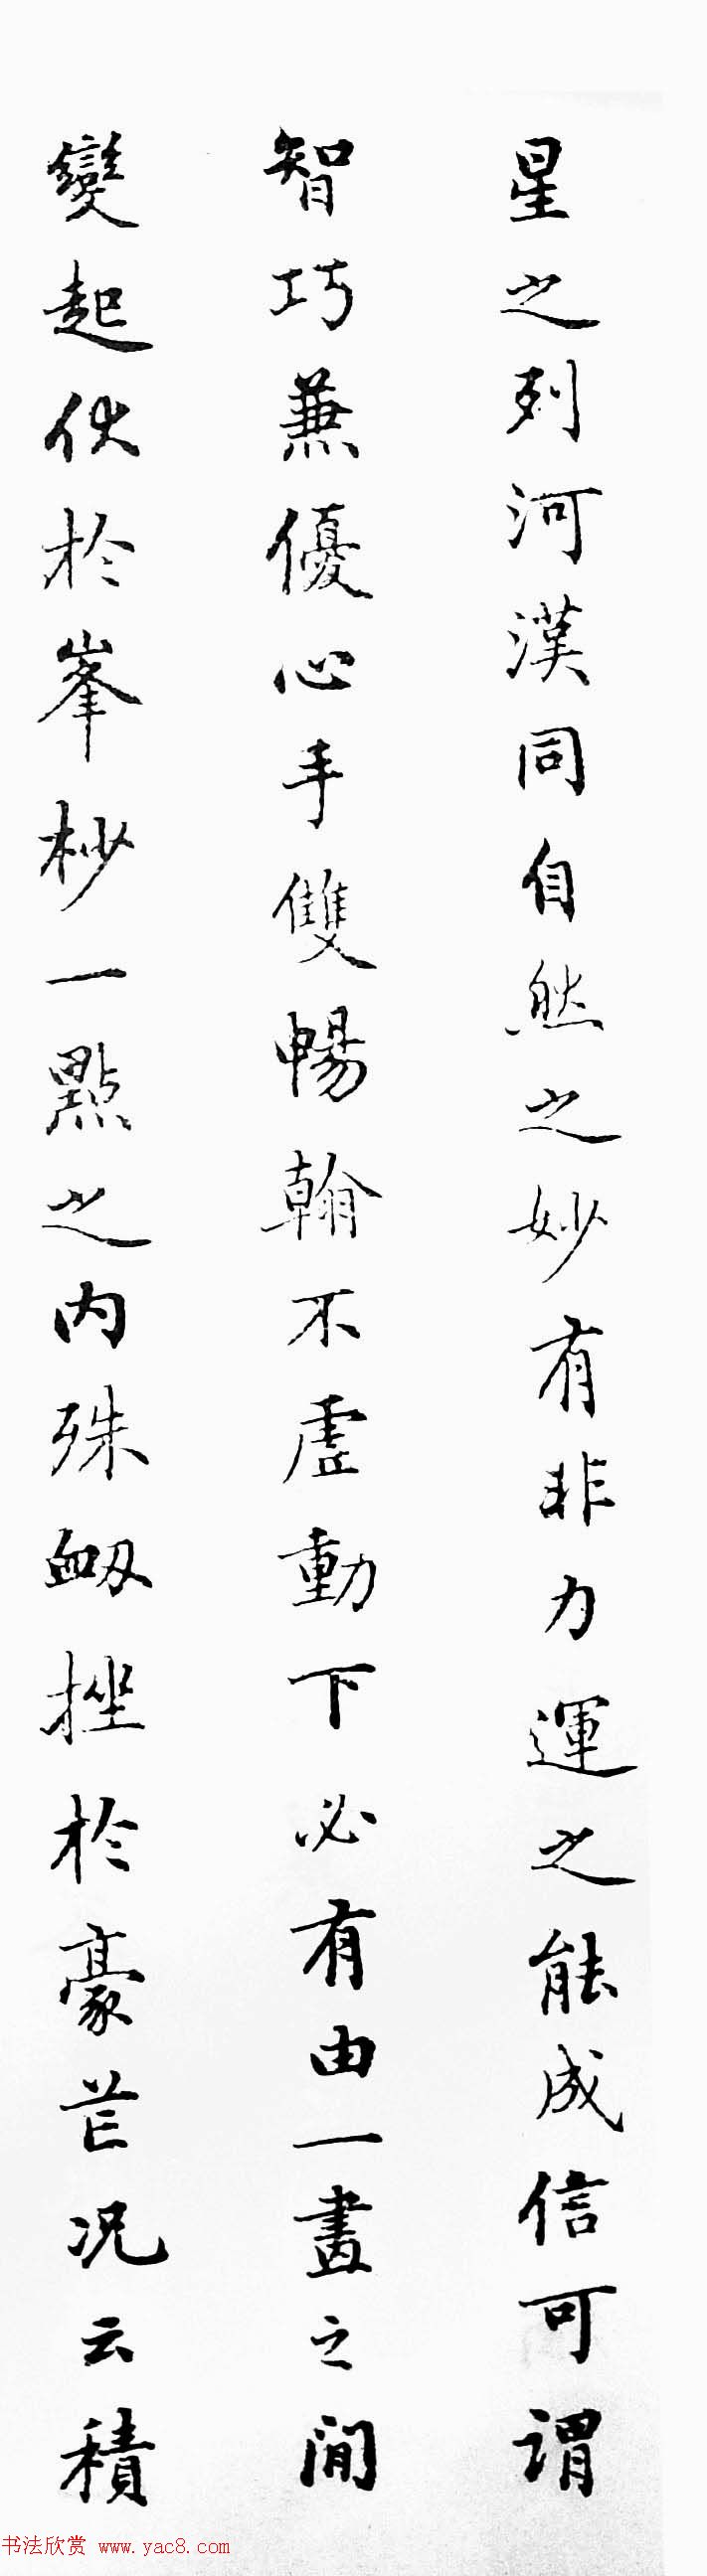 星之列河漢同自然之妙有非力運之能成信可謂
智巧兼優心手雙暢翰不虛動下必有由一畫之間
變起伏於峯杪一點之内殊衂挫於豪芒况云積
书法欣赏 www.yac8.com